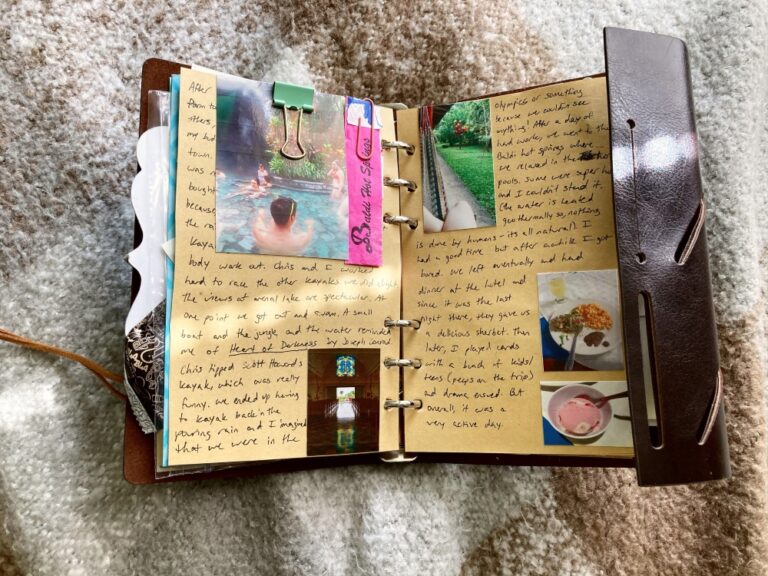 After
farm to
others,
my bed
town.
was n
bought
because
the ra
kayak
body work out. Chris and I worked
hard to race the other kayaks. We did alright.
The views at arenal lake are spectacular. At
one point we got out and swam. A small
boat and the jungle and the water reminded
me of Heart of Darkness by Joseph Conrad.
Chris tipped Scott Howard's
kayak, which was really
funny. We ended up having
to kayak back in the
pouring rain and I imagined
that we were in the
Baldi Hot Springs
olympics or something
because we couldn't see
anything! After a day of
hard work, we went to the
Baldi hot springs where
we relaxed in the hot
pools. Some were super hot
and I couldn't stand it.
(The water is heated
geothermally so, nothing
is done by humans - its all natural). I
had a good time but after awhile I got
bored. We left eventually and had
dinner at the hotel and
since it was the last
night there, they gave us
a delicious sherbet. Then
later, I played cards
with a bunch of kids/
teens (peeps on the trip)
and drama ensued. But
overall, it was a
very active day.